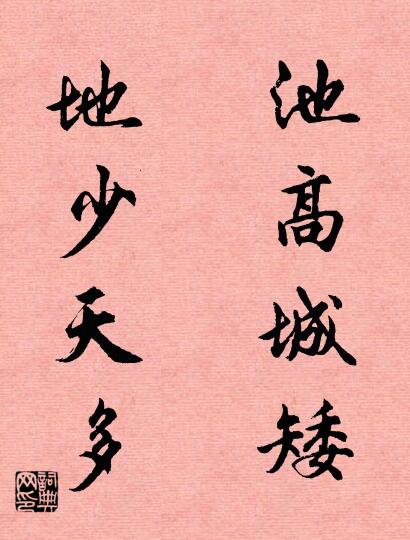 池高城矮
地少天多
詞典网印